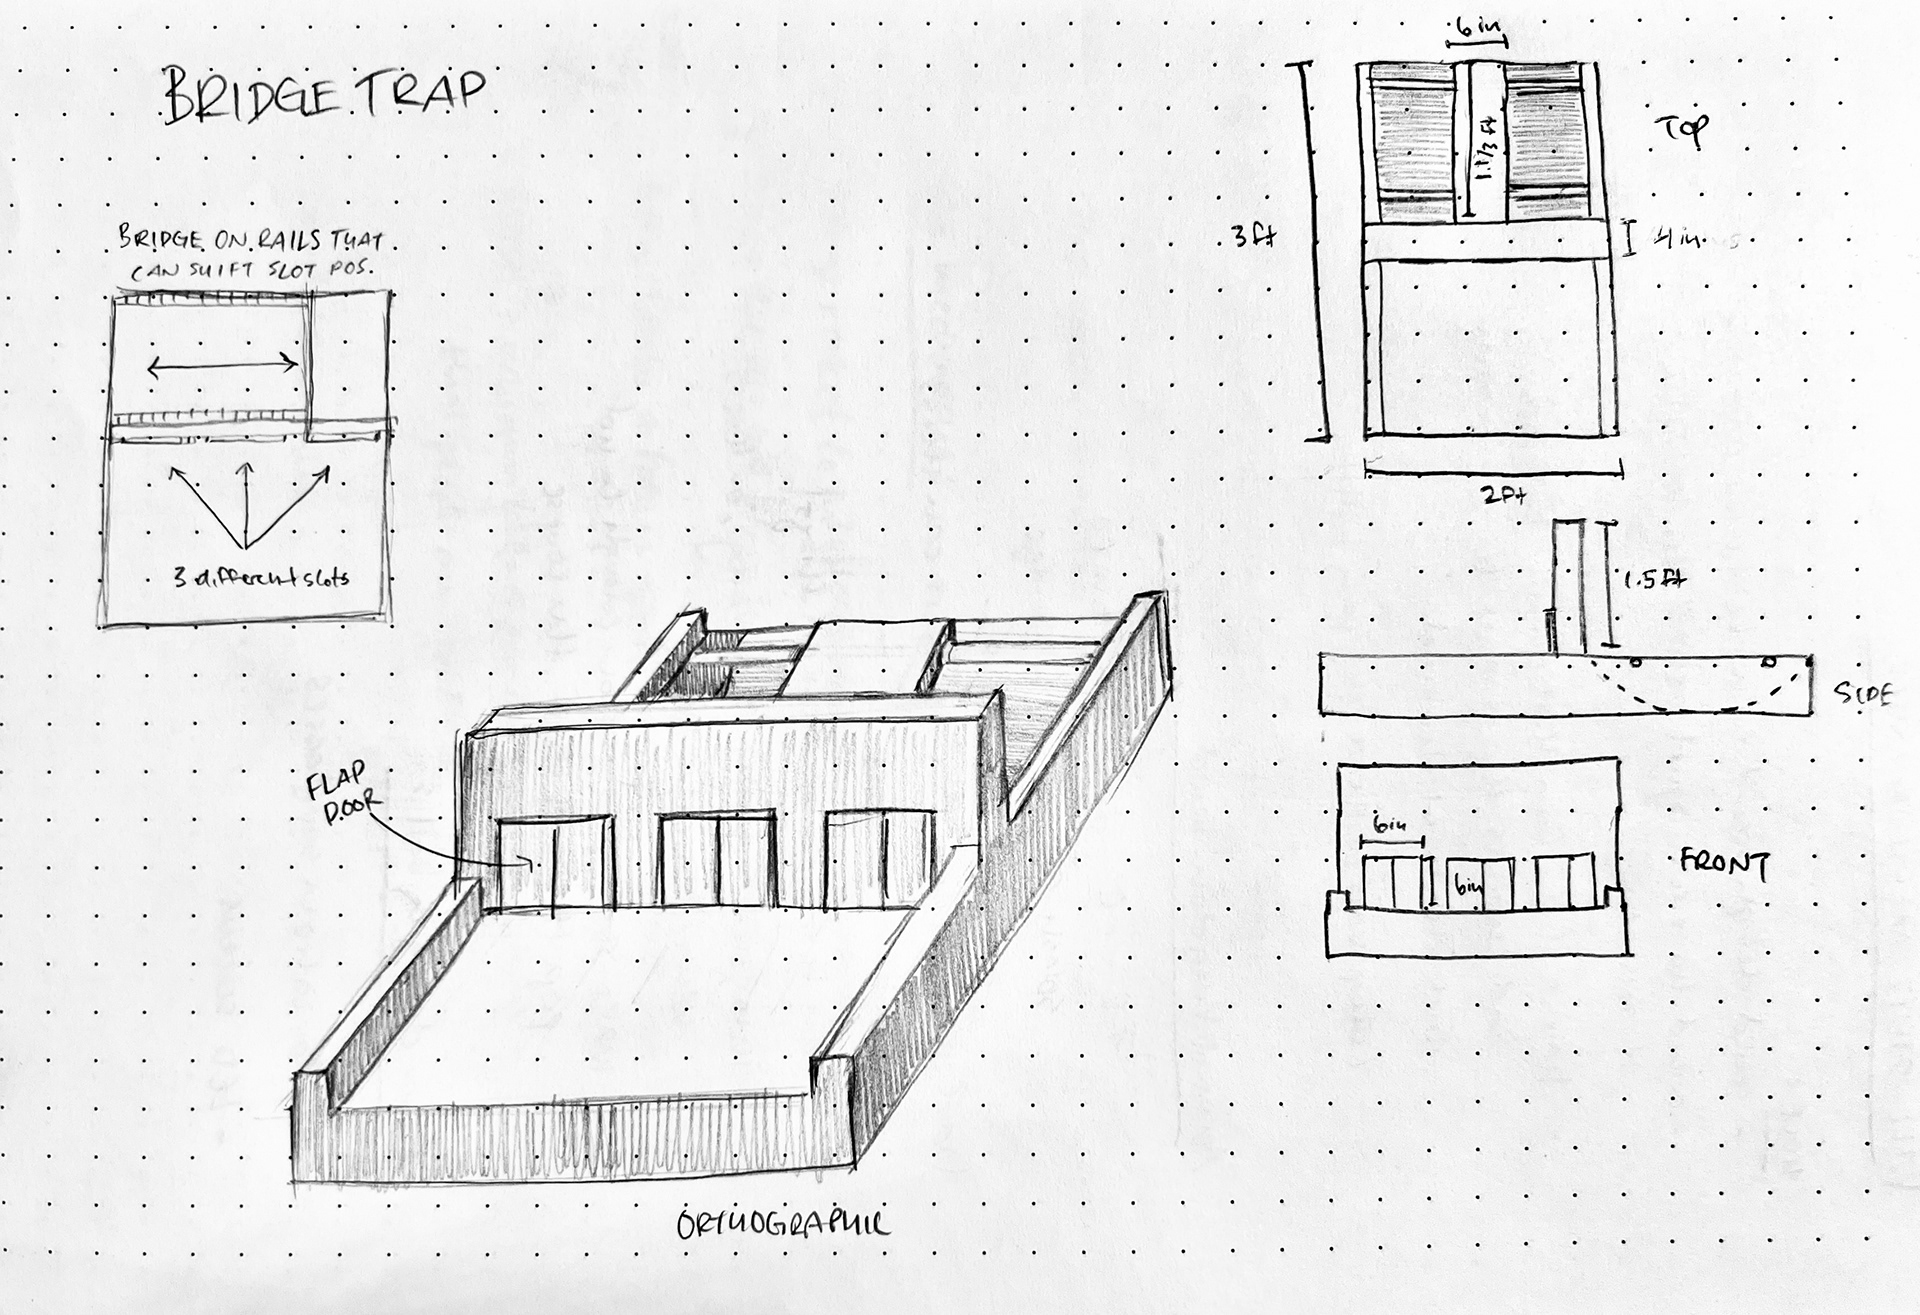 BRIDGE TRAP
BRIDGE ON RAILS THAT
CAN SHIFT SLOT POS.
3 different slots
FLAP
DOOR
ORTHOGRAPHIC
6in
1.1/3 ft
TOP
3ft
4in
2ft
1.5ft
SIDE
6in
6in
FRONT